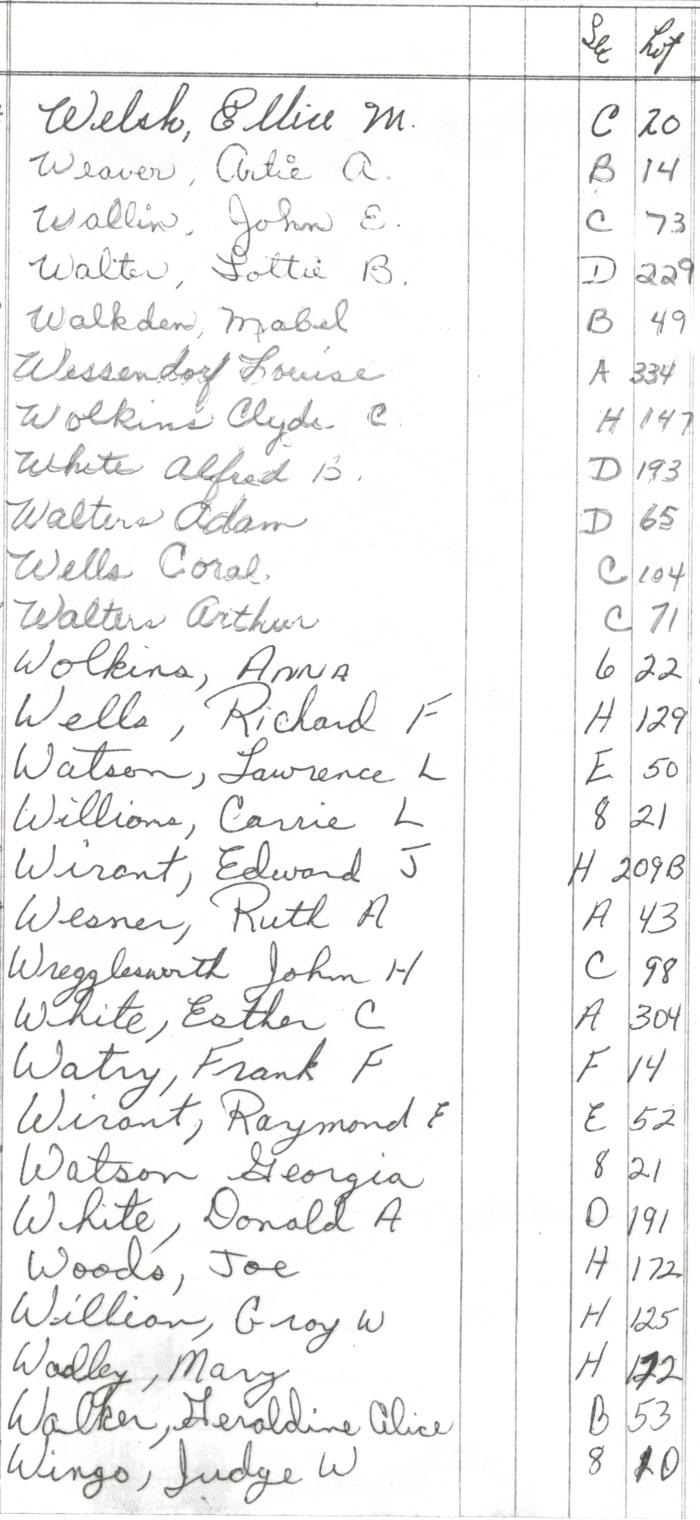 Sec Lot
Welsh, Ellice M. C 20
Weaver, Artie A. B 14
Wallin, John E. C 73
Walter, Lottie B. D 229
Walkden, Mabel B 49
Wessendorf Louise A 334
Wolkins Clyde C. H 147
White Alfred B. D 193
Walters Adam D 65
Wells Coral C 104
Walters Arthur C 71
Wolkins, Anna 6 22
Wells, Richard F H 129
Watson, Lawrence L E 50
Williams, Carrie L 8 21
Wirant, Edward J H 209B
Wesner, Ruth A A 43
Wregglesworth John H C 98
White, Esther C A 304
Watry, Frank F F 14
Wirant, Raymond E E 52
Watson Georgia 8 21
White, Donald A D 191
Woods, Joe H 172
Willian, Groy W H 125
Wadley, Mary H
Walker, Geraldine Alice B 53
Wingo, Judge W 8